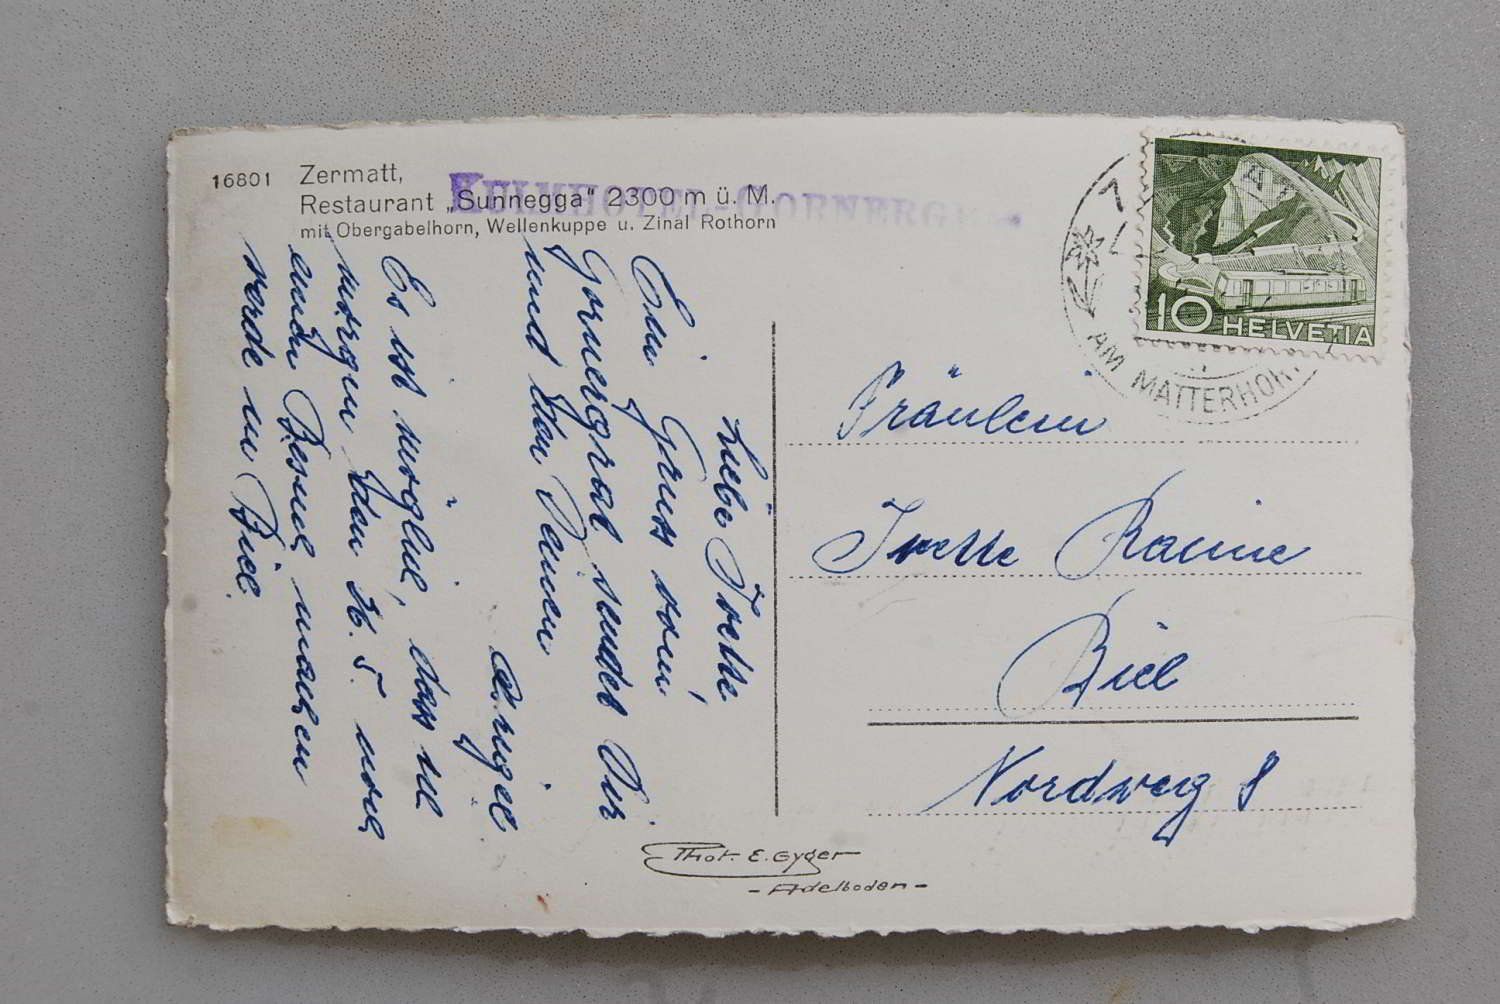 16801 Zermatt,
Restaurant „Sunnegga" 2300 m ü. M.
mit Obergabelhorn, Wellenkuppe u. Zinal Rothorn
KULMHOTEL-GORNERGR
10 HELVETIA
AM MATTERHORN
Liebe Ivette
Ein Gruss vom
Gornergrat sendet Dir
und den Deinen
Es ist möglich, dass ich
morgen den 16. 5. noch
einen Besuch machen
werde in Biel.
Fräulein
Ivette Racine
Biel
Nordweg 8
Phot. E. Gyger
- Adelboden -